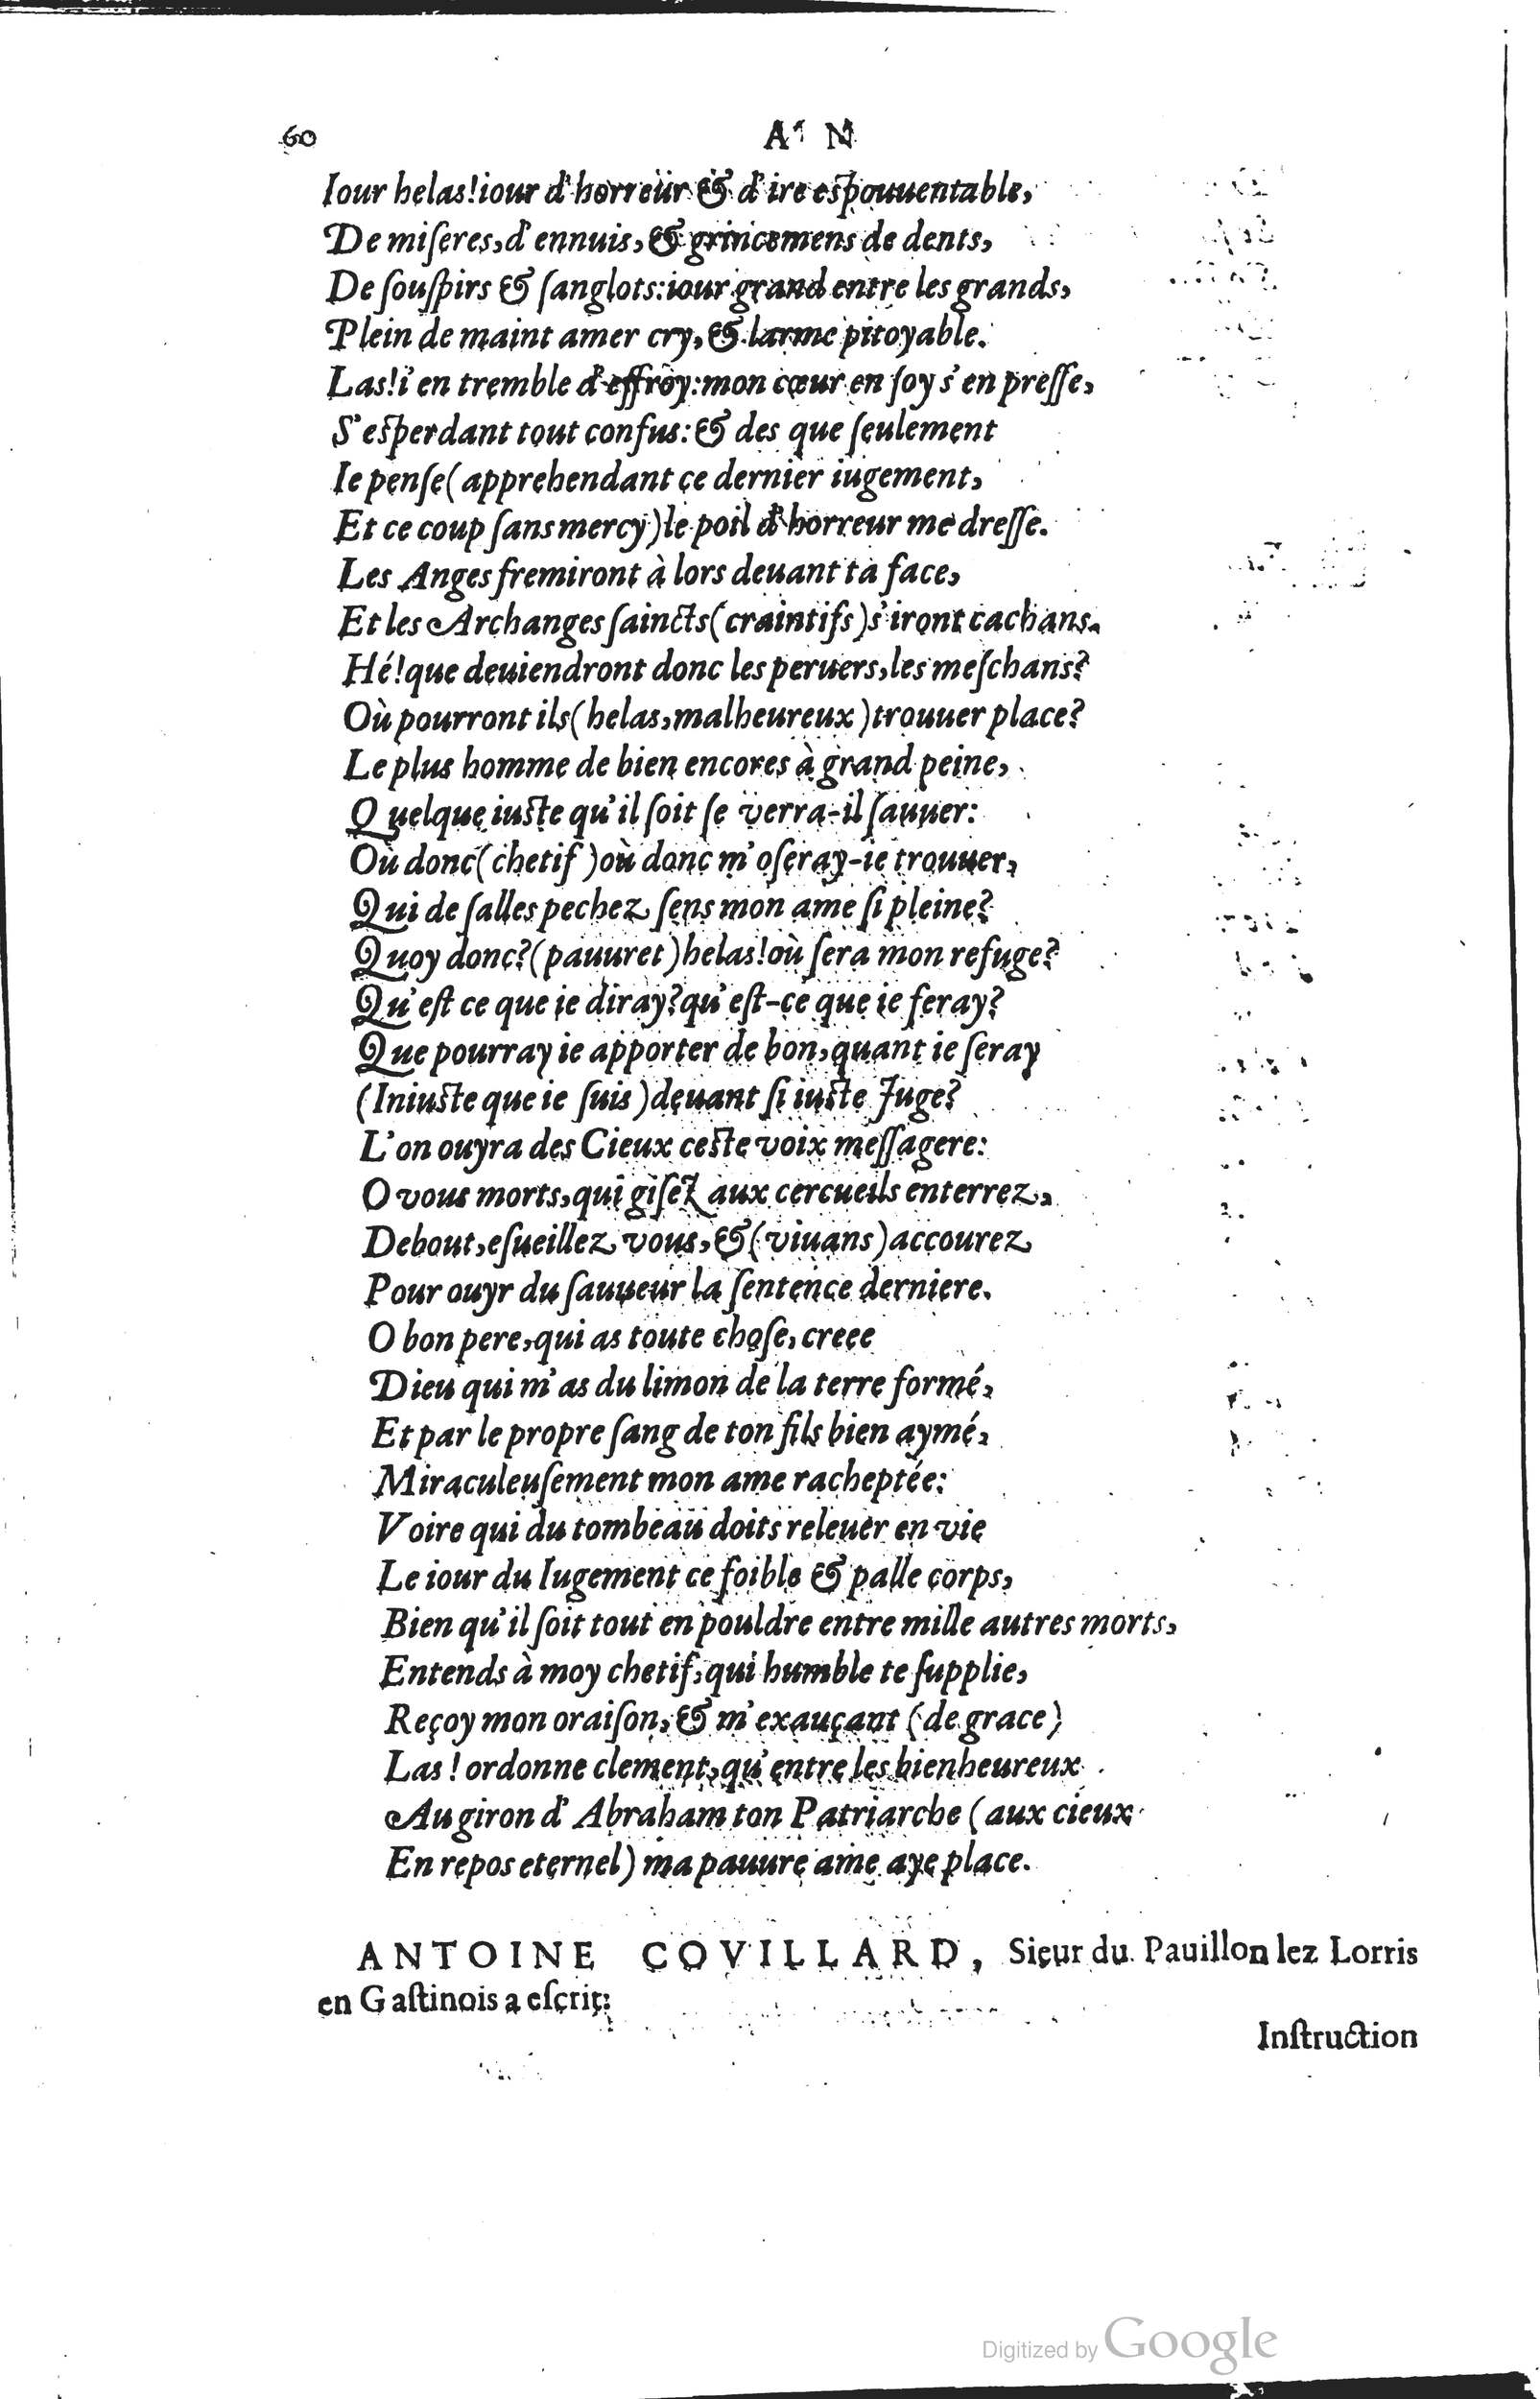 60
A N
Iour helas!iour d'horreur & d'ire espouuentable,
De miſeres,d'ennuis,& grincemens de dents,
De ſouſpirs & ſanglots:iour grand entre les grands,
Plein de maint amer cry,& larme pitoyable.
Las!i'en tremble d'effroy:mon cœur en ſoy s'en preſſe,
S'esperdant tout confus:& des que ſeulement
Ie penſe(apprehendant ce dernier iugement,
Et ce coup ſans mercy)le poil d'horreur me dreſſe.
Les Anges fremiront à lors deuant ta face,
Et les Archanges ſaincts(craintifs)s'iront cachans.
Hé!que deuiendront donc les peruers,les meſchans?
Où pourront ils(helas,malheureux)trouuer place?
Le plus homme de bien encores à grand peine,
Quelque iuste qu'il ſoit ſe verra-il ſauuer:
Où donc(chetif)où donc m'oſeray-ie trouuer,
Qui de ſalles pechez ſens mon ame ſi pleine?
Quoy donc?(pauuret)helas!où ſera mon refuge?
Qu'eſt ce que ie diray?qu'eſt-ce que ie feray?
Que pourray ie apporter de bon,quant ie ſeray
(Iniuste que ie ſuis)deuant ſi iuste Juge?
L'on ouyra des Cieux ceste voix meſſagere:
O vous morts,qui giſez aux cercueils enterrez,
Debout,eſueillez vous,&(viuans)accourez
Pour ouyr du ſauueur la ſentence derniere.
O bon pere,qui as toute choſe,creee
Dieu qui m'as du limon de la terre formé,
Et par le propre ſang de ton fils bien aymé,
Miraculeuſement mon ame racheptée:
Voire qui du tombeau doits releuer en vie
Le iour du Iugement ce foible & palle corps,
Bien qu'il ſoit tout en pouldre entre mille autres morts,
Entends à moy chetif,qui humble te ſupplie,
Reçoy mon oraiſon,& m'exauçant (de grace)
Las! ordonne clement,qu'entre les bienheureux
Au giron d'Abraham ton Patriarche (aux cieux
En repos eternel) ma pauure ame aye place.
ANTOINE COVILLARD, Sieur du Pauillon lez Lorris
en Gaſtinois a eſcrit:
Inſtruction
Digitized by Google